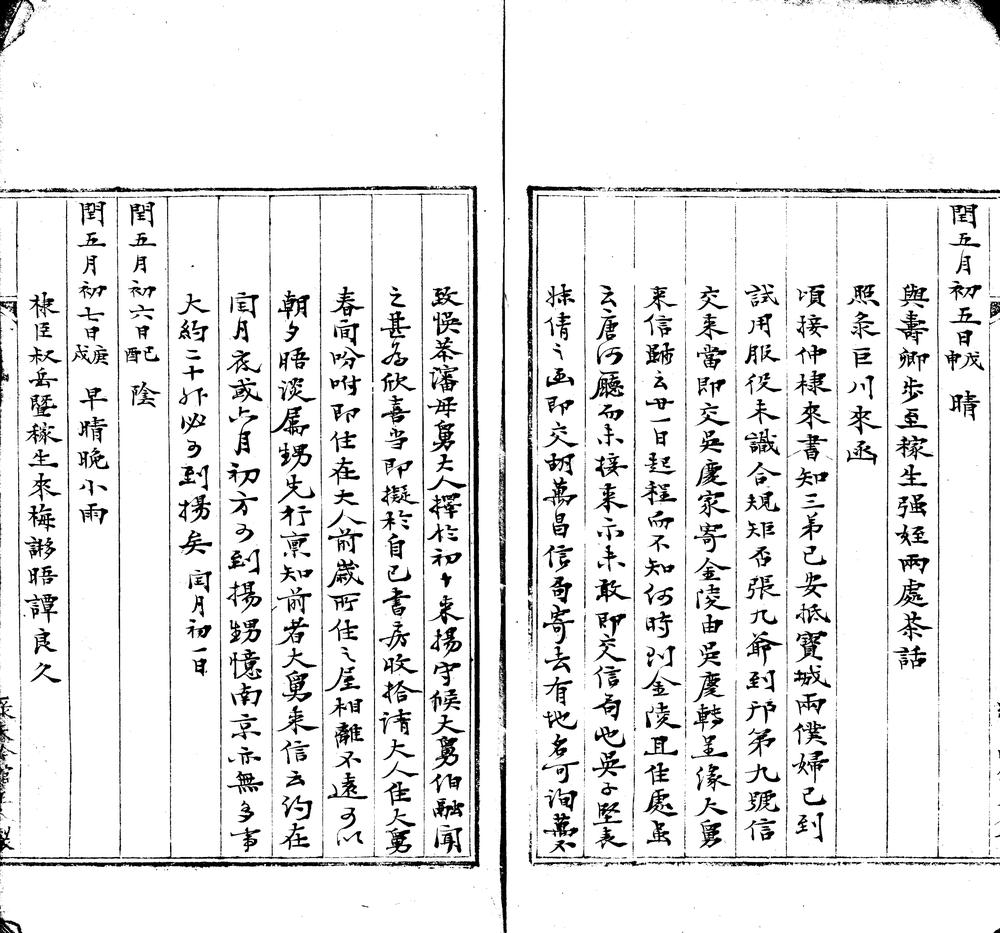 閏五月初五日戊申 晴
與壽卿步至稼生强姪兩處茶話
照彔巨川來函
頃接仲棣來書知三弟已安抵寶城兩僕婦已到
試用服役未識合規矩否張九爺到邗第九號信
交來當即交吳慶家寄金陵由吳慶轉呈緣大舅
來信雖云廿一日起程而不知何時到金陵且住處虽
云唐河廳而未接來示未敢即交信局也吳子堅表
妹倩之函即交胡萬昌信局寄去有地名可詢萬不
致悞茶瀋母舅大人擇於初十來揚守候大舅伯融聞
之甚為欣喜當即擬於自己書房收拾請大人住大舅
春间吩咐即住在大人前歲所住之屋相離不遠可以
朝夕晤談属甥先行禀知前者大舅来信云约在
闰月底或六月初方可到揚甥憶南京亦無多事
大約二十外必可到揚矣 闰月初一日
閏五月初六日己酉 陰
閏五月初七日庚戌 早晴晚小雨
棣臣叔岳暨稼生來梅谢晤譚良久